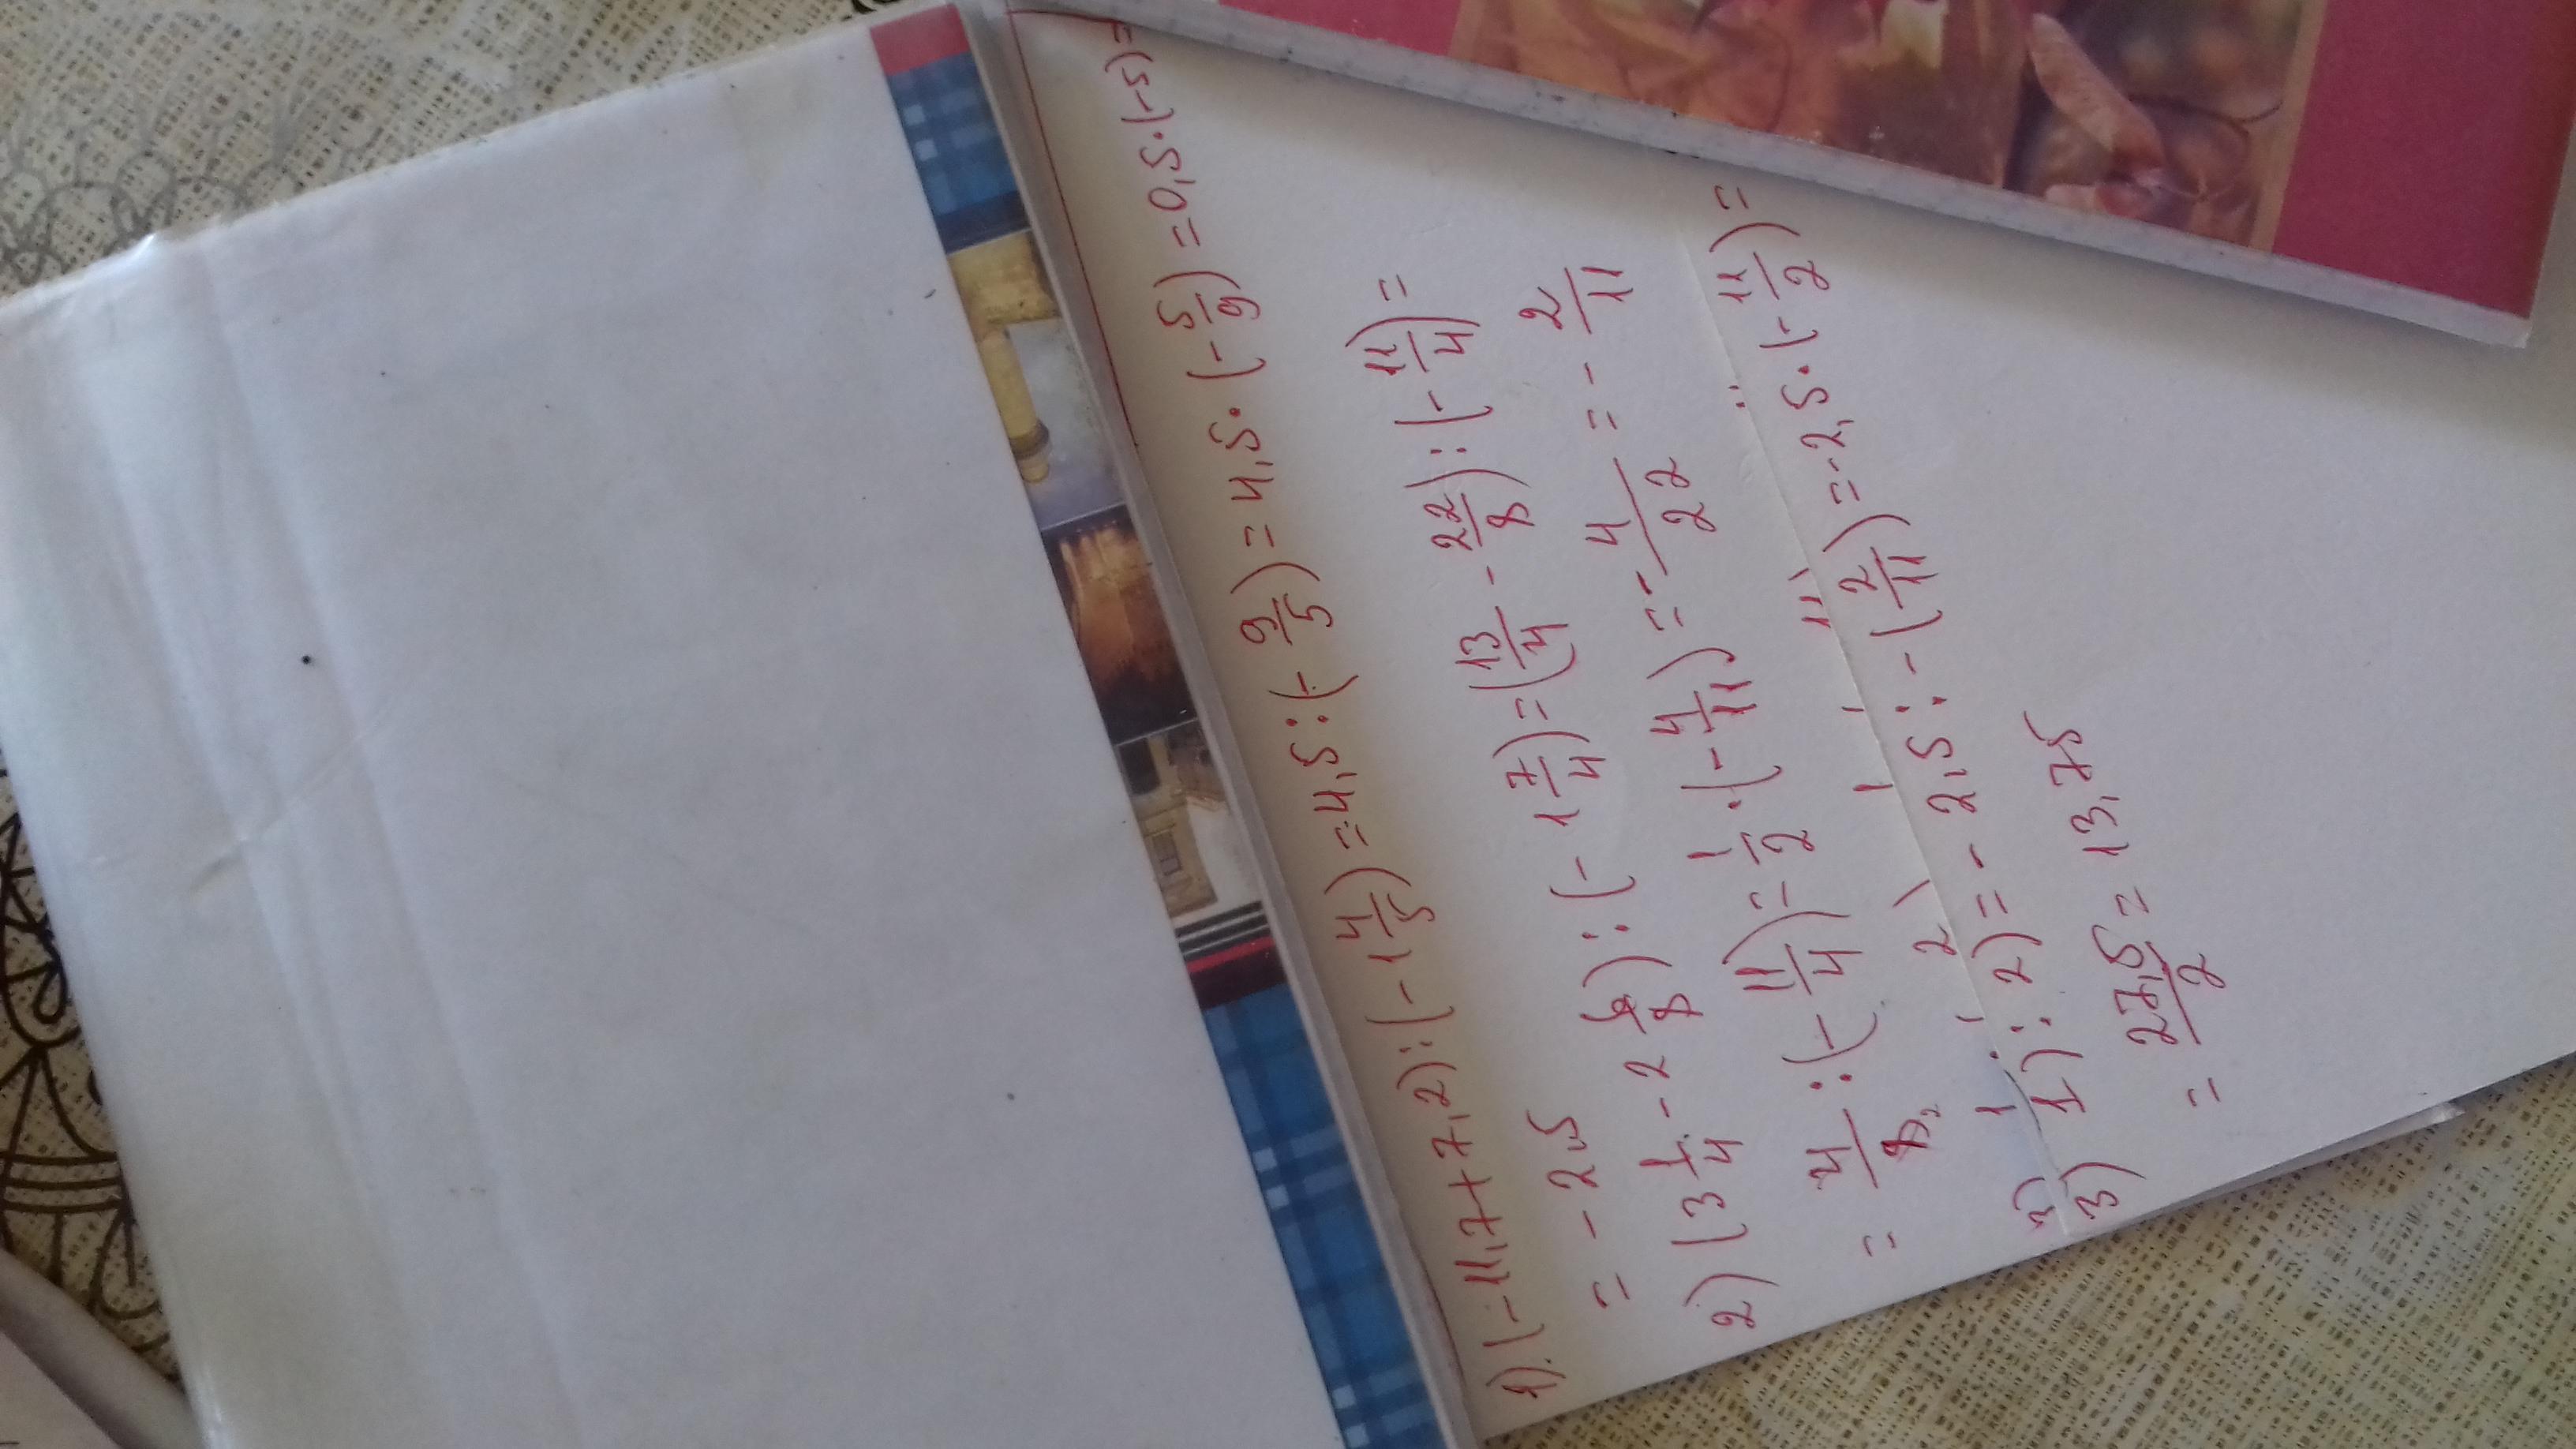 1) (-11,7+7,2):(-1 4/5)=4,5:(-9/5)=4,5·(-5/9)=0,5·(-5)=
= -2,5
2) (3 1/4 - 2 6/8):(-1 7/4)=(13/4 - 22/8):(-11/4)=
= 4/8 2 :(-11/4)=1/2·(-4/11)=-4/22=-2/11
3) 1):2)=-2,5:-(2/11)=-2,5·(-11/2)=
= 27,5/2=13,75